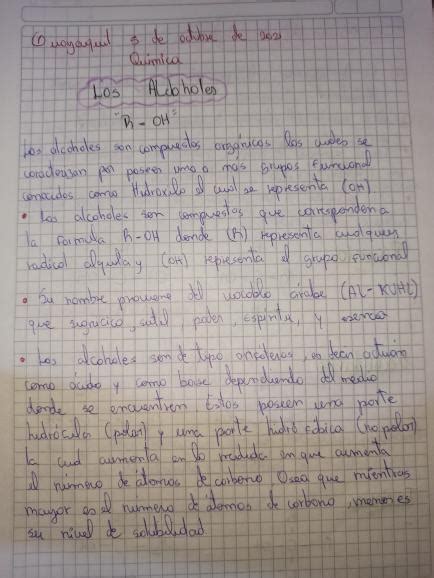 Guayaquil 3 de octubre de 2021
Química
Los Alcoholes
"R - OH"
Los alcoholes son compuestos orgánicos los cuales se
caracterizan por poseer uno o más grupos funcional
conocidos como Hidroxilo el cual se representa (OH)
• Los alcoholes son compuestos que corresponden a
la formula R-OH donde (R) representa cualquier
radical alquila y (OH) representa el grupo funcional
• Su nombre proviene del vocablo árabe (AL-KUHL)
que significa, sutil, poder, Espíritu, y esencia
• Los alcoholes son de tipo anfóteros, es decir actúan
como ácido y como base dependiendo del medio
donde se encuentren Estos poseen una parte
hidrófila (polar) y una parte hidrofóbica (no polar)
la cual aumenta en la medida en que aumenta
el número de átomos de carbono Osea que mientras
mayor es el numero de átomos de carbono, menor es
su nivel de solubilidad.